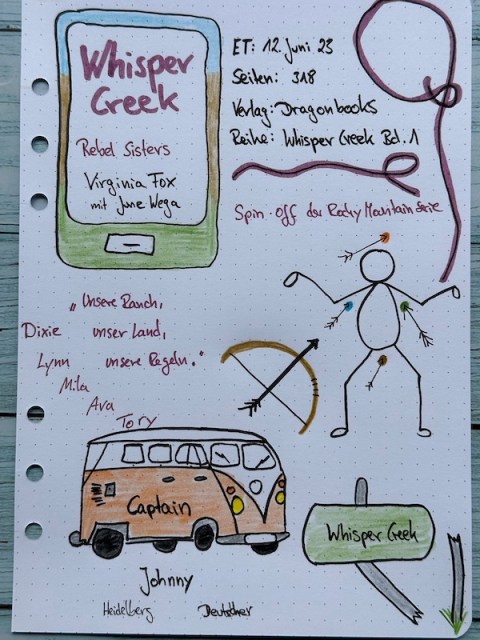 Whisper
Creek
Rebel Sisters
Virginia Fox
mit June Wega
ET: 12. Juni 23
Seiten: 318
Verlag: Dragonbooks
Reihe: Whisper Creek Bd. 1
Spin-Off der Rocky Mountain Serie
„Unsere Ranch,
unser Land,
unsere Regeln."
Dixie
Lynn
Mila
Ava
Tory
Captain
Whisper Creek
Johnny
Heidelberg Deutscher